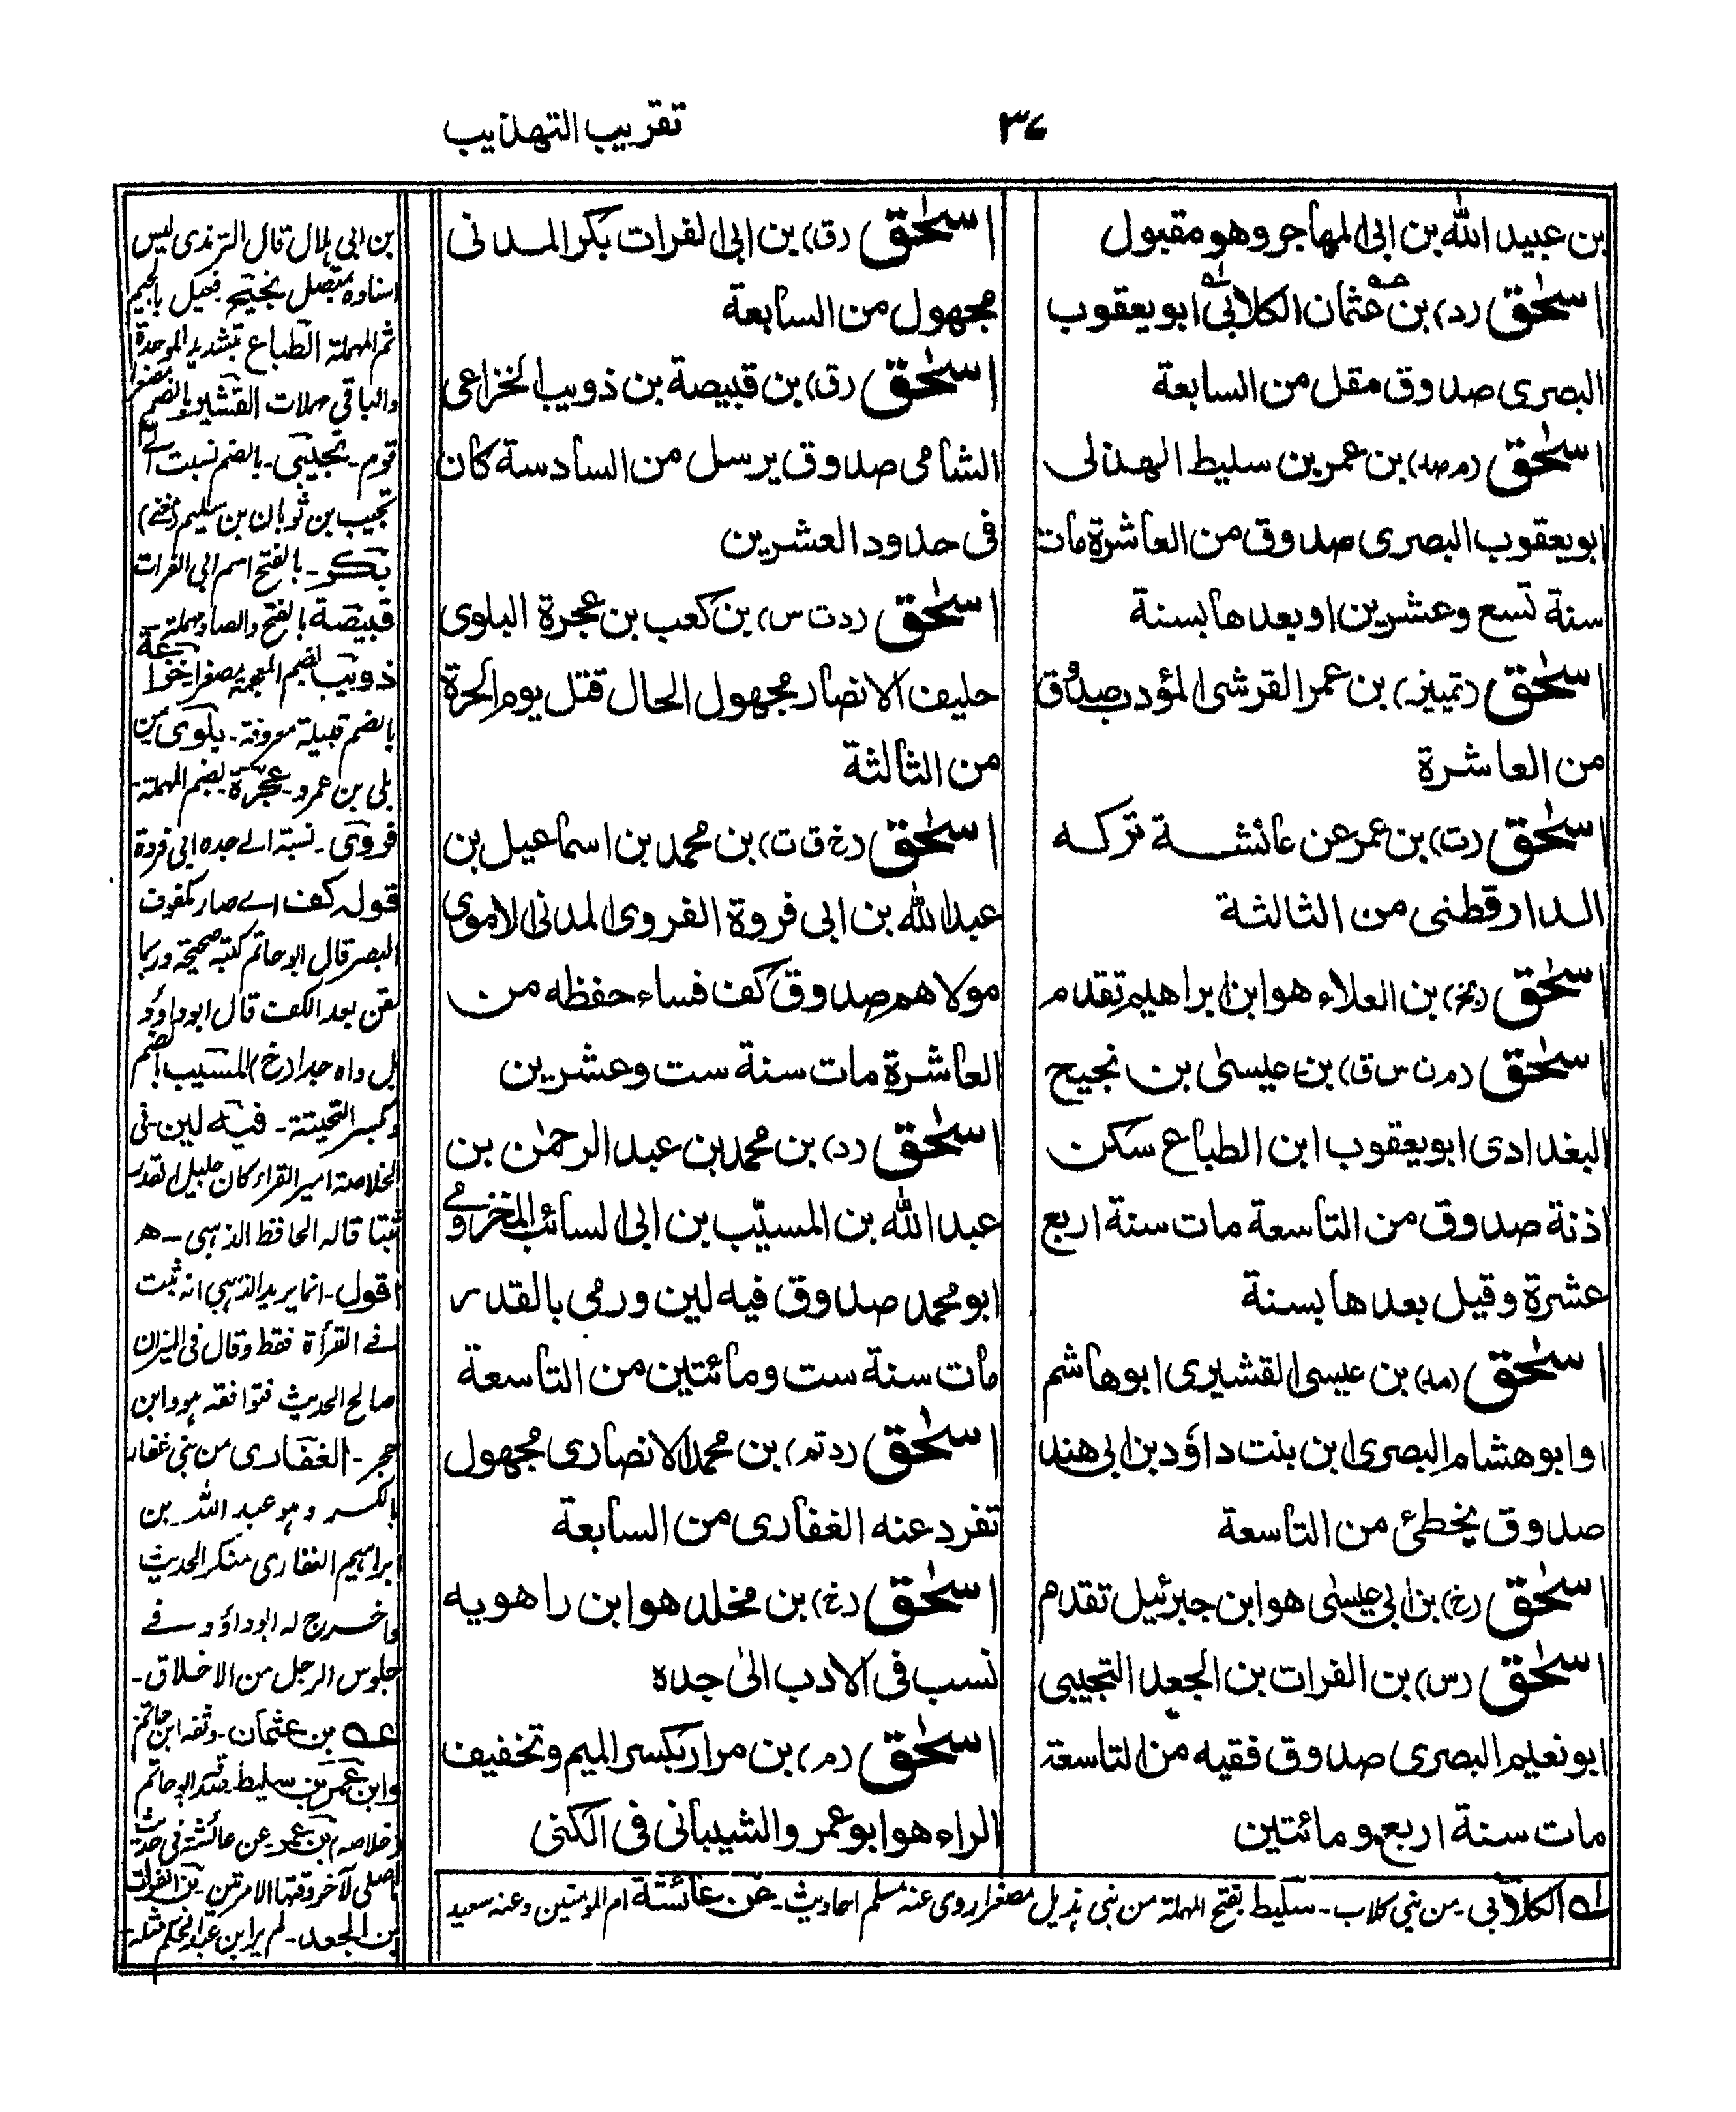 ٣٧
تقريب التهذيب
بن عبيد الله بن ابى المهاجر وهو مقبول
اسحٰق (د) بن عثمان الكلابى ابو يعقوب
البصرى صدوق مقل من السابعة
اسحٰق (م صد) بن عمر بن سليط الهذلى
ابو يعقوب البصرى صدوق من العاشرة مات
سنة تسع وعشرين او بعدها بسنة
اسحٰق (تمييز) بن عمر القرشى المؤدب صدوق
من العاشرة
اسحٰق (ت) بن عمر عن عائشة تركه
الدارقطنى من الثالثة
اسحٰق (بخ) بن العلاء هو ابن ابراهيم تقدم
اسحٰق (م ت س ق) بن عيسىٰ بن نجيح
البغدادى ابو يعقوب ابن الطباع سكن
اذنة صدوق من التاسعة مات سنة اربع
عشرة وقيل بعدها بسنة
اسحٰق (مد) بن عيسى القشيرى ابو هاشم
او ابو هشام البصرى ابن بنت داؤد بن ابى هند
صدوق يخطئ من التاسعة
اسحٰق (خ) بن ابى عيسٰى هو ابن جبرئيل تقدم
اسحٰق (س) بن الفرات بن الجعد التجيبى
ابو نعيم البصرى صدوق فقيه من التاسعة
مات سنة اربع ومائتين
اسحٰق (ق) بن ابى الفرات بكر المدنى
مجهول من السابعة
اسحٰق (ق) بن قبيصة بن ذويب الخزاعى
الشامى صدوق يرسل من السادسة كان
فى حدود العشرين
اسحٰق (د ت س) بن كعب بن عجرة البلوى
حليف الانصار مجهول الحال قتل يوم الحرة
من الثالثة
اسحٰق (خ ت ق) بن محمد بن اسماعيل بن
عبد الله بن ابى فروة الفروى المدنى الاموى
مولاهم صدوق كف فساء حفظه من
العاشرة مات سنة ست وعشرين
اسحٰق (د) بن محمد بن عبد الرحمٰن بن
عبد الله بن المسيّب بن ابى السائب المخزومى
ابو محمد صدوق فيه لين ورمى بالقدر
مات سنة ست ومائتين من التاسعة
اسحٰق (د تم) بن محمد الانصارى مجهول
تفرد عنه الغفارى من السابعة
اسحٰق (خ) بن مخلد هو ابن راهويه
نسب فى الادب الىٰ جده
اسحٰق (م) بن مرار بكسر الميم وتخفيف
الراء هو ابو عمرو الشيبانى فى الكنى
له الكلابى - من بنى كلاب - سليط بفتح المهملة من بنى هذيل مصغرا روى عنه مسلم احاديث - عن عائشة ام المومنين وعنه سعيد
بن ابى هلال قال الترمذى ليس
اسناده بمتصل نجيح فعيل بالجيم
ثم المهملة الطباع بتشديد الموحدة
والباقى مهملات القشيرى بالضم مصغرا
قوم - تجيبى - بالضم نسبت الى
تجيب بن ثوبان بن سليم (مغنى)
بكر - بالفتح اسم ابى الفرات
قبيصة بالفتح والصاد مهملة
ذويب بضم المعجمة مصغرا خزاعة
بالضم قبيلة معروفة - بلوى من
بلى بن عمرو - عجرة بضم المهملة -
فروى - نسبة الى جده ابى فروة
قوله كف اى صار مكفوف
البصر قال ابو حاتم كتبه صحيحة وربما
لقن بعد الكف قال ابو داؤد
بل واه جدا (خ) المسيب بالضم
وكسر التحتية - فيه لين - فى
الخلاصة امير القراء كان جليل القدر
ثبتا قاله الحافظ الذهبى - ه
اقول - انما يريد الذهبى انه ثبت
فى القرأة فقط وقال فى الميزان
صالح الحديث فتوافقه هو وابن
حجر - الغفارى من بنى غفار
بالكسر وهو عبد الله بن
ابراهيم الغفارى منكر الحديث
واخرج له ابو داؤد فى
جلوس الرجل من الاخلاق -
عه بن عثمان - وثقه ابن حاتم
وابن عمر بن سليط صدقه ابو حاتم
خلاصه بن عمر - عن عائشة فى حديث
ماصلى لآخر وقتها الا مرتين - بن الفرات
بن الجعد - لم ير ابن عبد الحكم مثله -